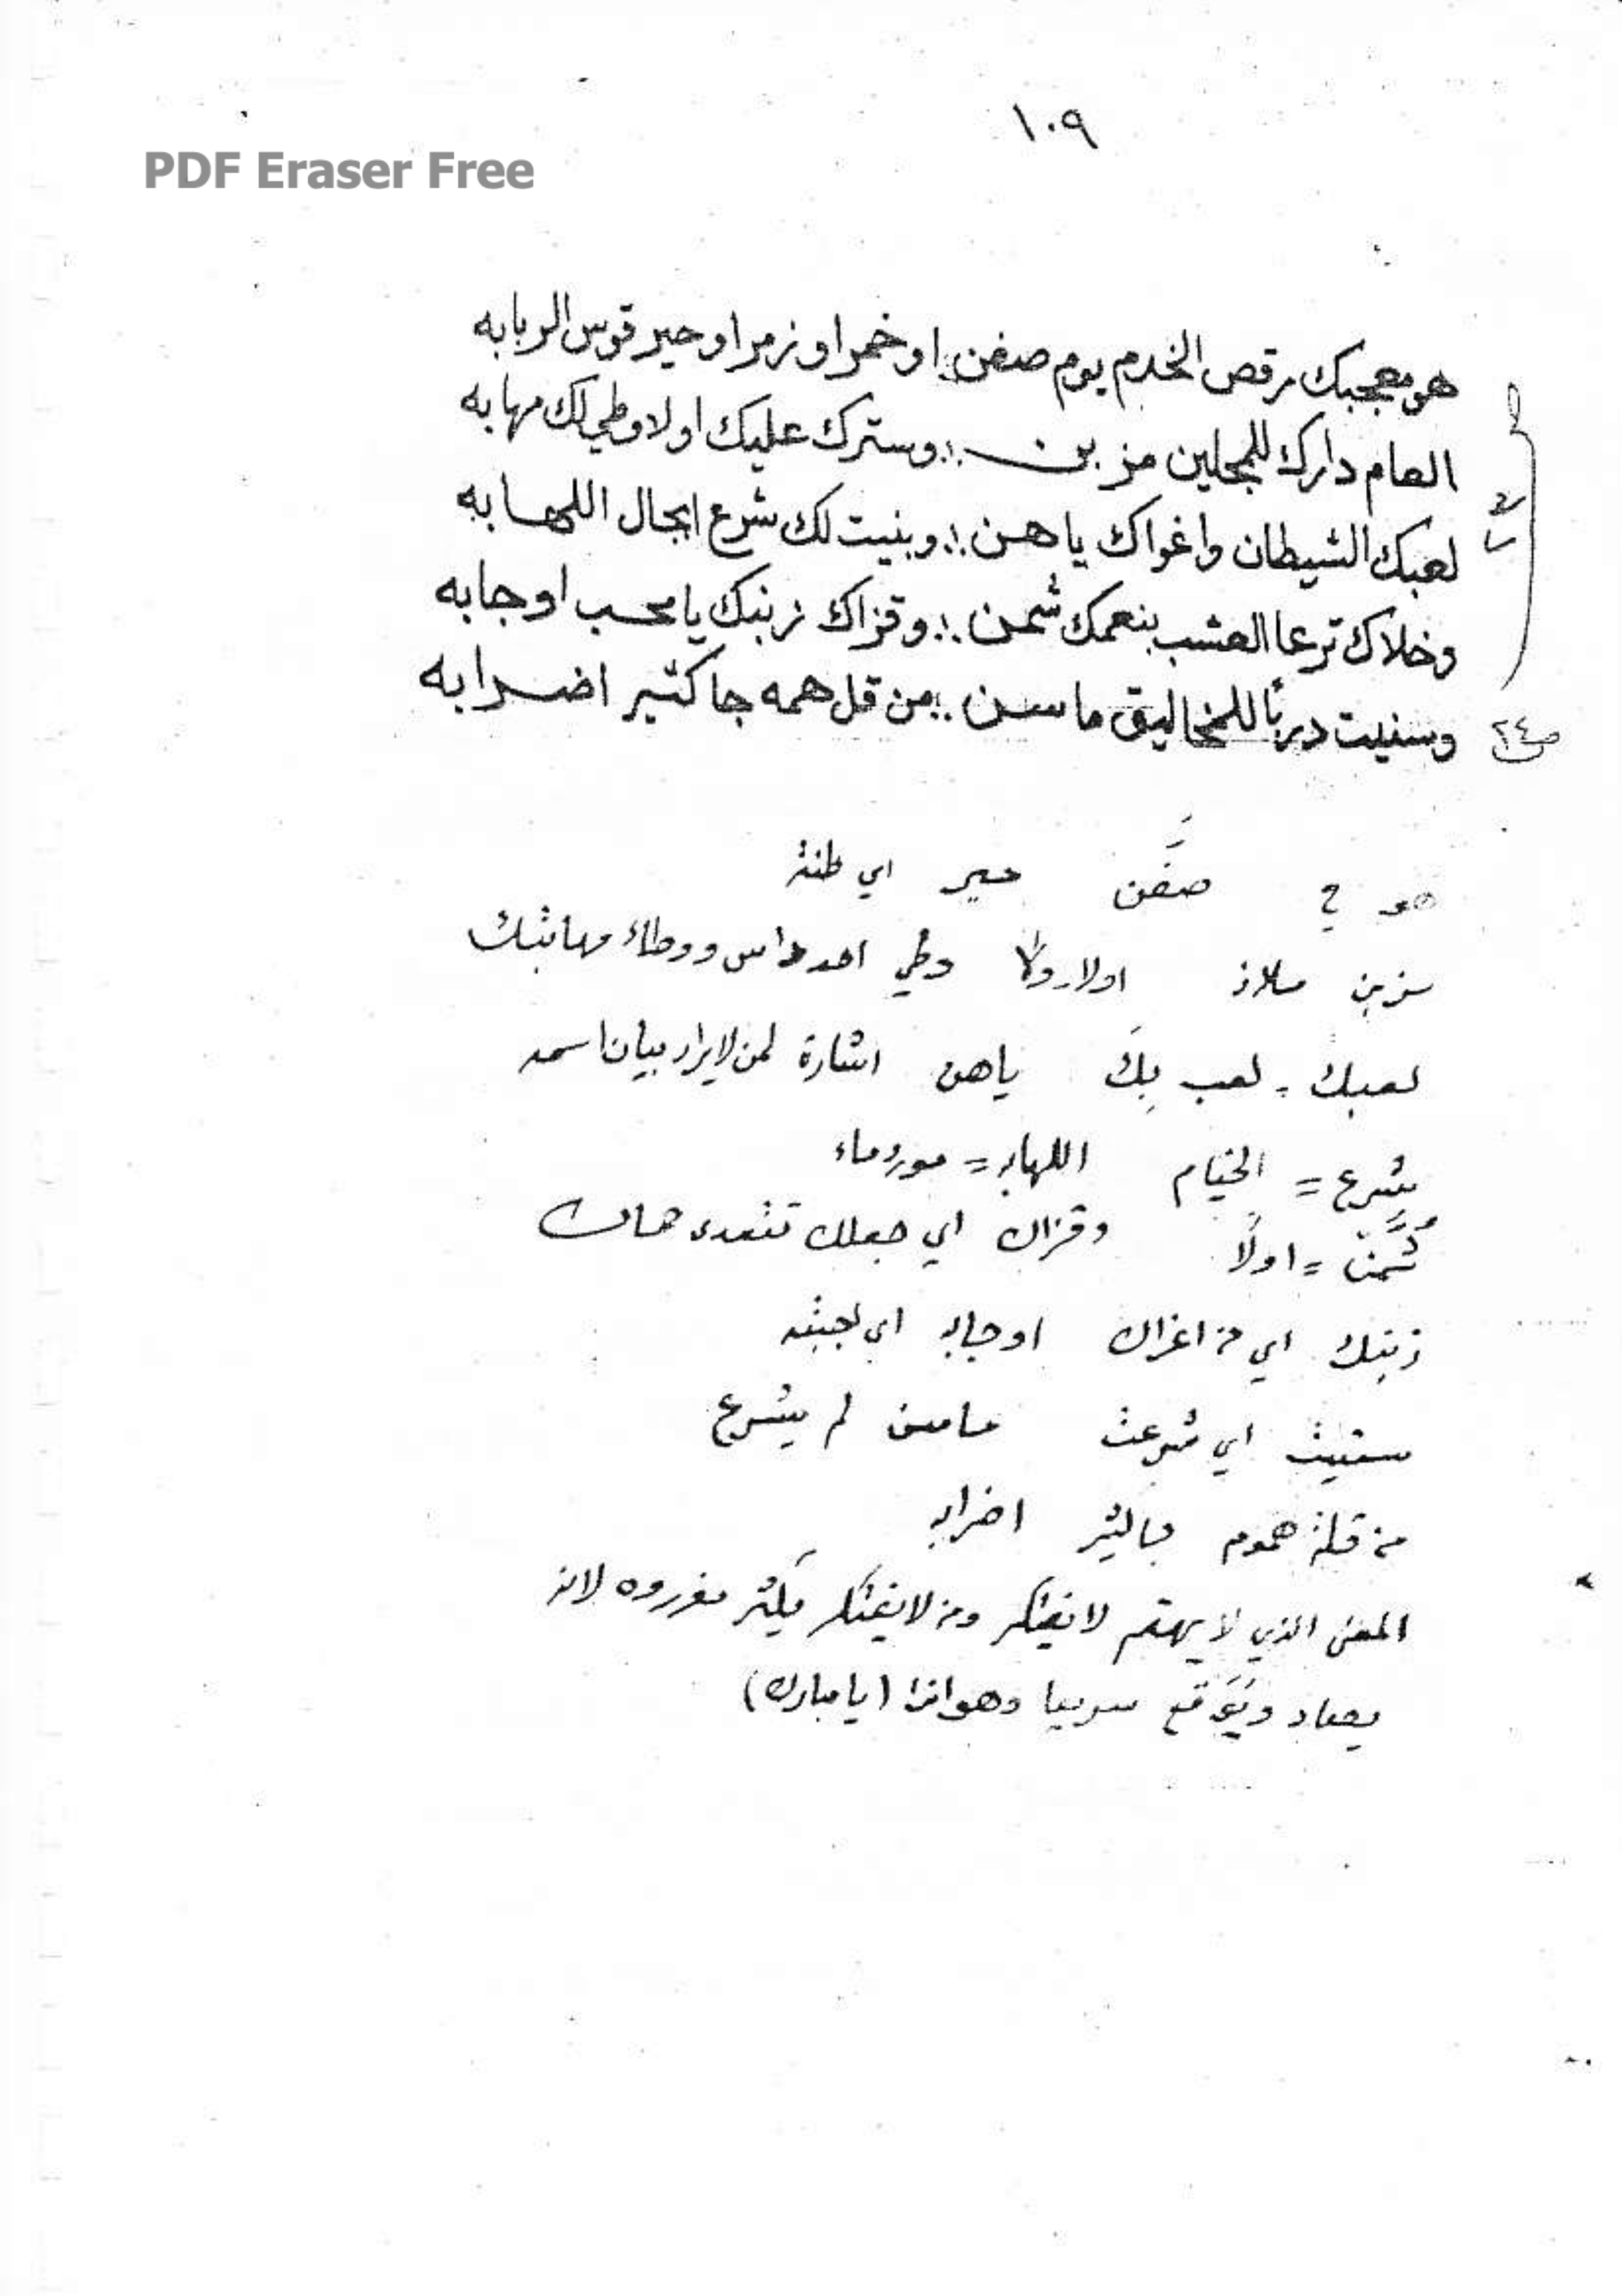 ١٠٩
PDF Eraser Free
هو معجبك رقص الخدم يوم صفن : او خمر او زمر او حير قوس الربابه
العام دارك للمجلين مزبن : وسترك عليك اولا وطي لك مهابه
لعبك الشيطان واغواك ياهن : وبنيت لك شرع ابجال اللهابه
وخلاك ترعا العشب بنعمك شمن : وقزاك زبنك يا محسب اوجابه
وسنيت درباً للمخاليق ما سن : من قل همه جا كثير اضرابه
ص٢٤
هو ؟ صفَن حير اي طنة
مزبن ملاذ اولا ولا وطي احد داس ووطاء مهابتك
لعبك - لعب بِكَ ياهن اشارة لمن لا يراد بيان اسمه
شرع = الخيام اللهابه = مورد ماء
شمن = اولًا وقزاك اي جعلك تتعدى حماك
زبنك اي من اغراك اوجابه اي بجيته
سنيت اي شرعت ما سن لم يشرع
من قلة هموم جا كثير اضرابه
المعنى الذي لا يهتم لا يفتكر ومن لا يفتكر يكثر مغروه لانه
يصاد ويتوقع سريعا وهو انذا (يا مبارك)